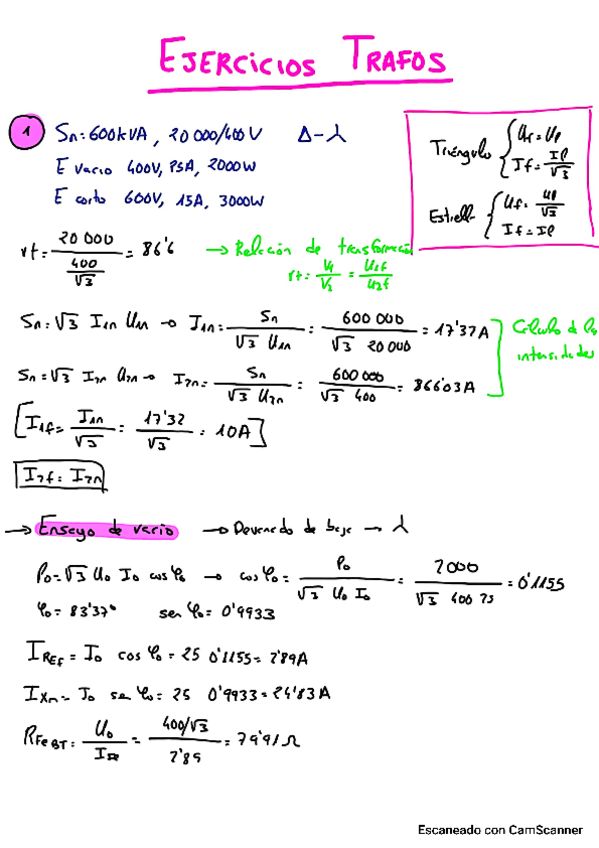 EJERCICIOS TRAFOS
1 Sn=600kVA, 20 000/400V Δ-⅄
E vacio 400V, 25A, 2000W
E corto 600V, 15A, 3000W
Triángulo { Uf = Ul
If = Il/√3
Estrella { Uf = Ul/√3
If = Il
rt = 20 000/(400/√3) = 86'6 → Relación de transformación
rt = V1/V2 = U1f/U2f
Sn = √3 I1n U1n → I1n = Sn/(√3 U1n) = 600 000/(√3 20 000) = 17'37A ] Cálculo de las
intensidades
Sn = √3 I2n U2n → I2n = Sn/(√3 U2n) = 600 000/(√3 400) = 866'03A
[I1f = I1n/√3 = 17'32/√3 = 10A]
I2f = I2n
→ Ensayo de vacio → Devanado de baja → ⅄
P0 = √3 U0 I0 cos φ0 → cos φ0 = P0/(√3 U0 I0) = 2000/(√3 400 25) = 0'1155
φ0 = 83'37° sen φ0 = 0'9933
I REF = I0 cos φ0 = 25 0'1155 = 2'89A
I Xm = I0 sen φ0 = 25 0'9933 = 24'83A
R Fe BT = U0/I = (400/√3)/2'89 = 79'91 Ω
Escaneado con CamScanner